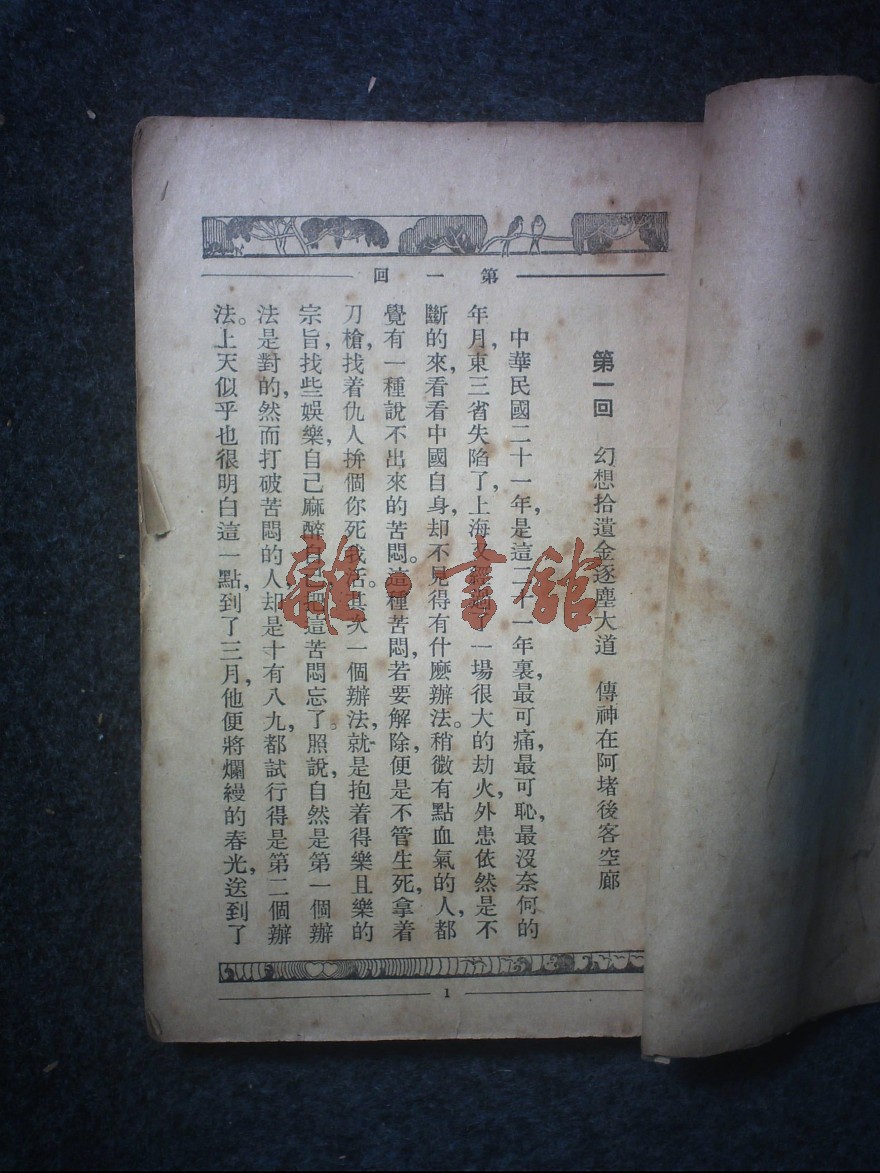 第一回
第一回　幻想拾遺金逐塵大道　傳神在阿堵後客空廊
中華民國二十一年，是這二十一年裏，最可痛，最可恥，最沒奈何的
年月，東三省失陷了，上海又經過了一場很大的劫火，外患依然是不
斷的來，看看中國自身，却不見得有什麽辦法。稍微有點血氣的人，都
覺有一種說不出來的苦悶。這種苦悶，若要解除，便是不管生死，拿着
刀槍，找着仇人拚個你死我活。其次一個辦法，就是抱着得樂且樂的
宗旨，找些娛樂，自己麻醉自己，把這苦悶忘了。照說，自然是第一個辦
法是對的，然而打破苦悶的人，却是十有八九，都試行得是第二個辦
法。上天似乎也很明白這一點，到了三月，他便將爛縵的春光，送到了
1
雜·書館